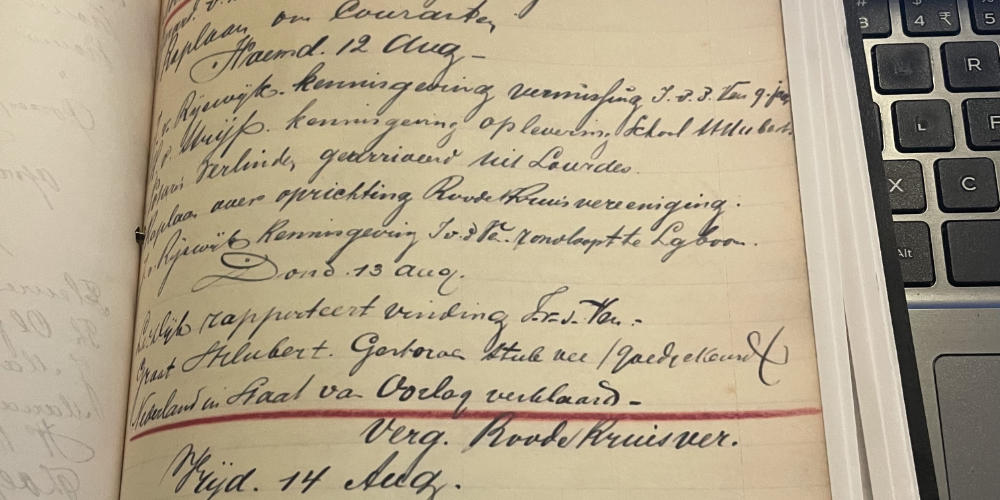 Kaplaan om Couranten
Woensd. 12 Aug.
v. Rijswijk. kennisgeving vermissing J. v. d. Ven 9 jaar
kennisgeving oplevering School St Hubert
Verlinden gearriveerd uit Lourdes.
Kaplaan over oprichting Roode Kruisvereeniging.
v. Rijswijk kennisgeving J. v. d. Ven. rondloopt te
Dond. 13 Aug.
rapporteert vinding J. v. d. Ven.
St Hubert. Gestorven stuk vee (goedgekeurd)
Nederland in Staat van Oorlog verklaard -
Verg. Roode Kruisver.
Vrijd. 14 Aug.
$ 4 ₹
3
5
R
L
F
X
C
Alt